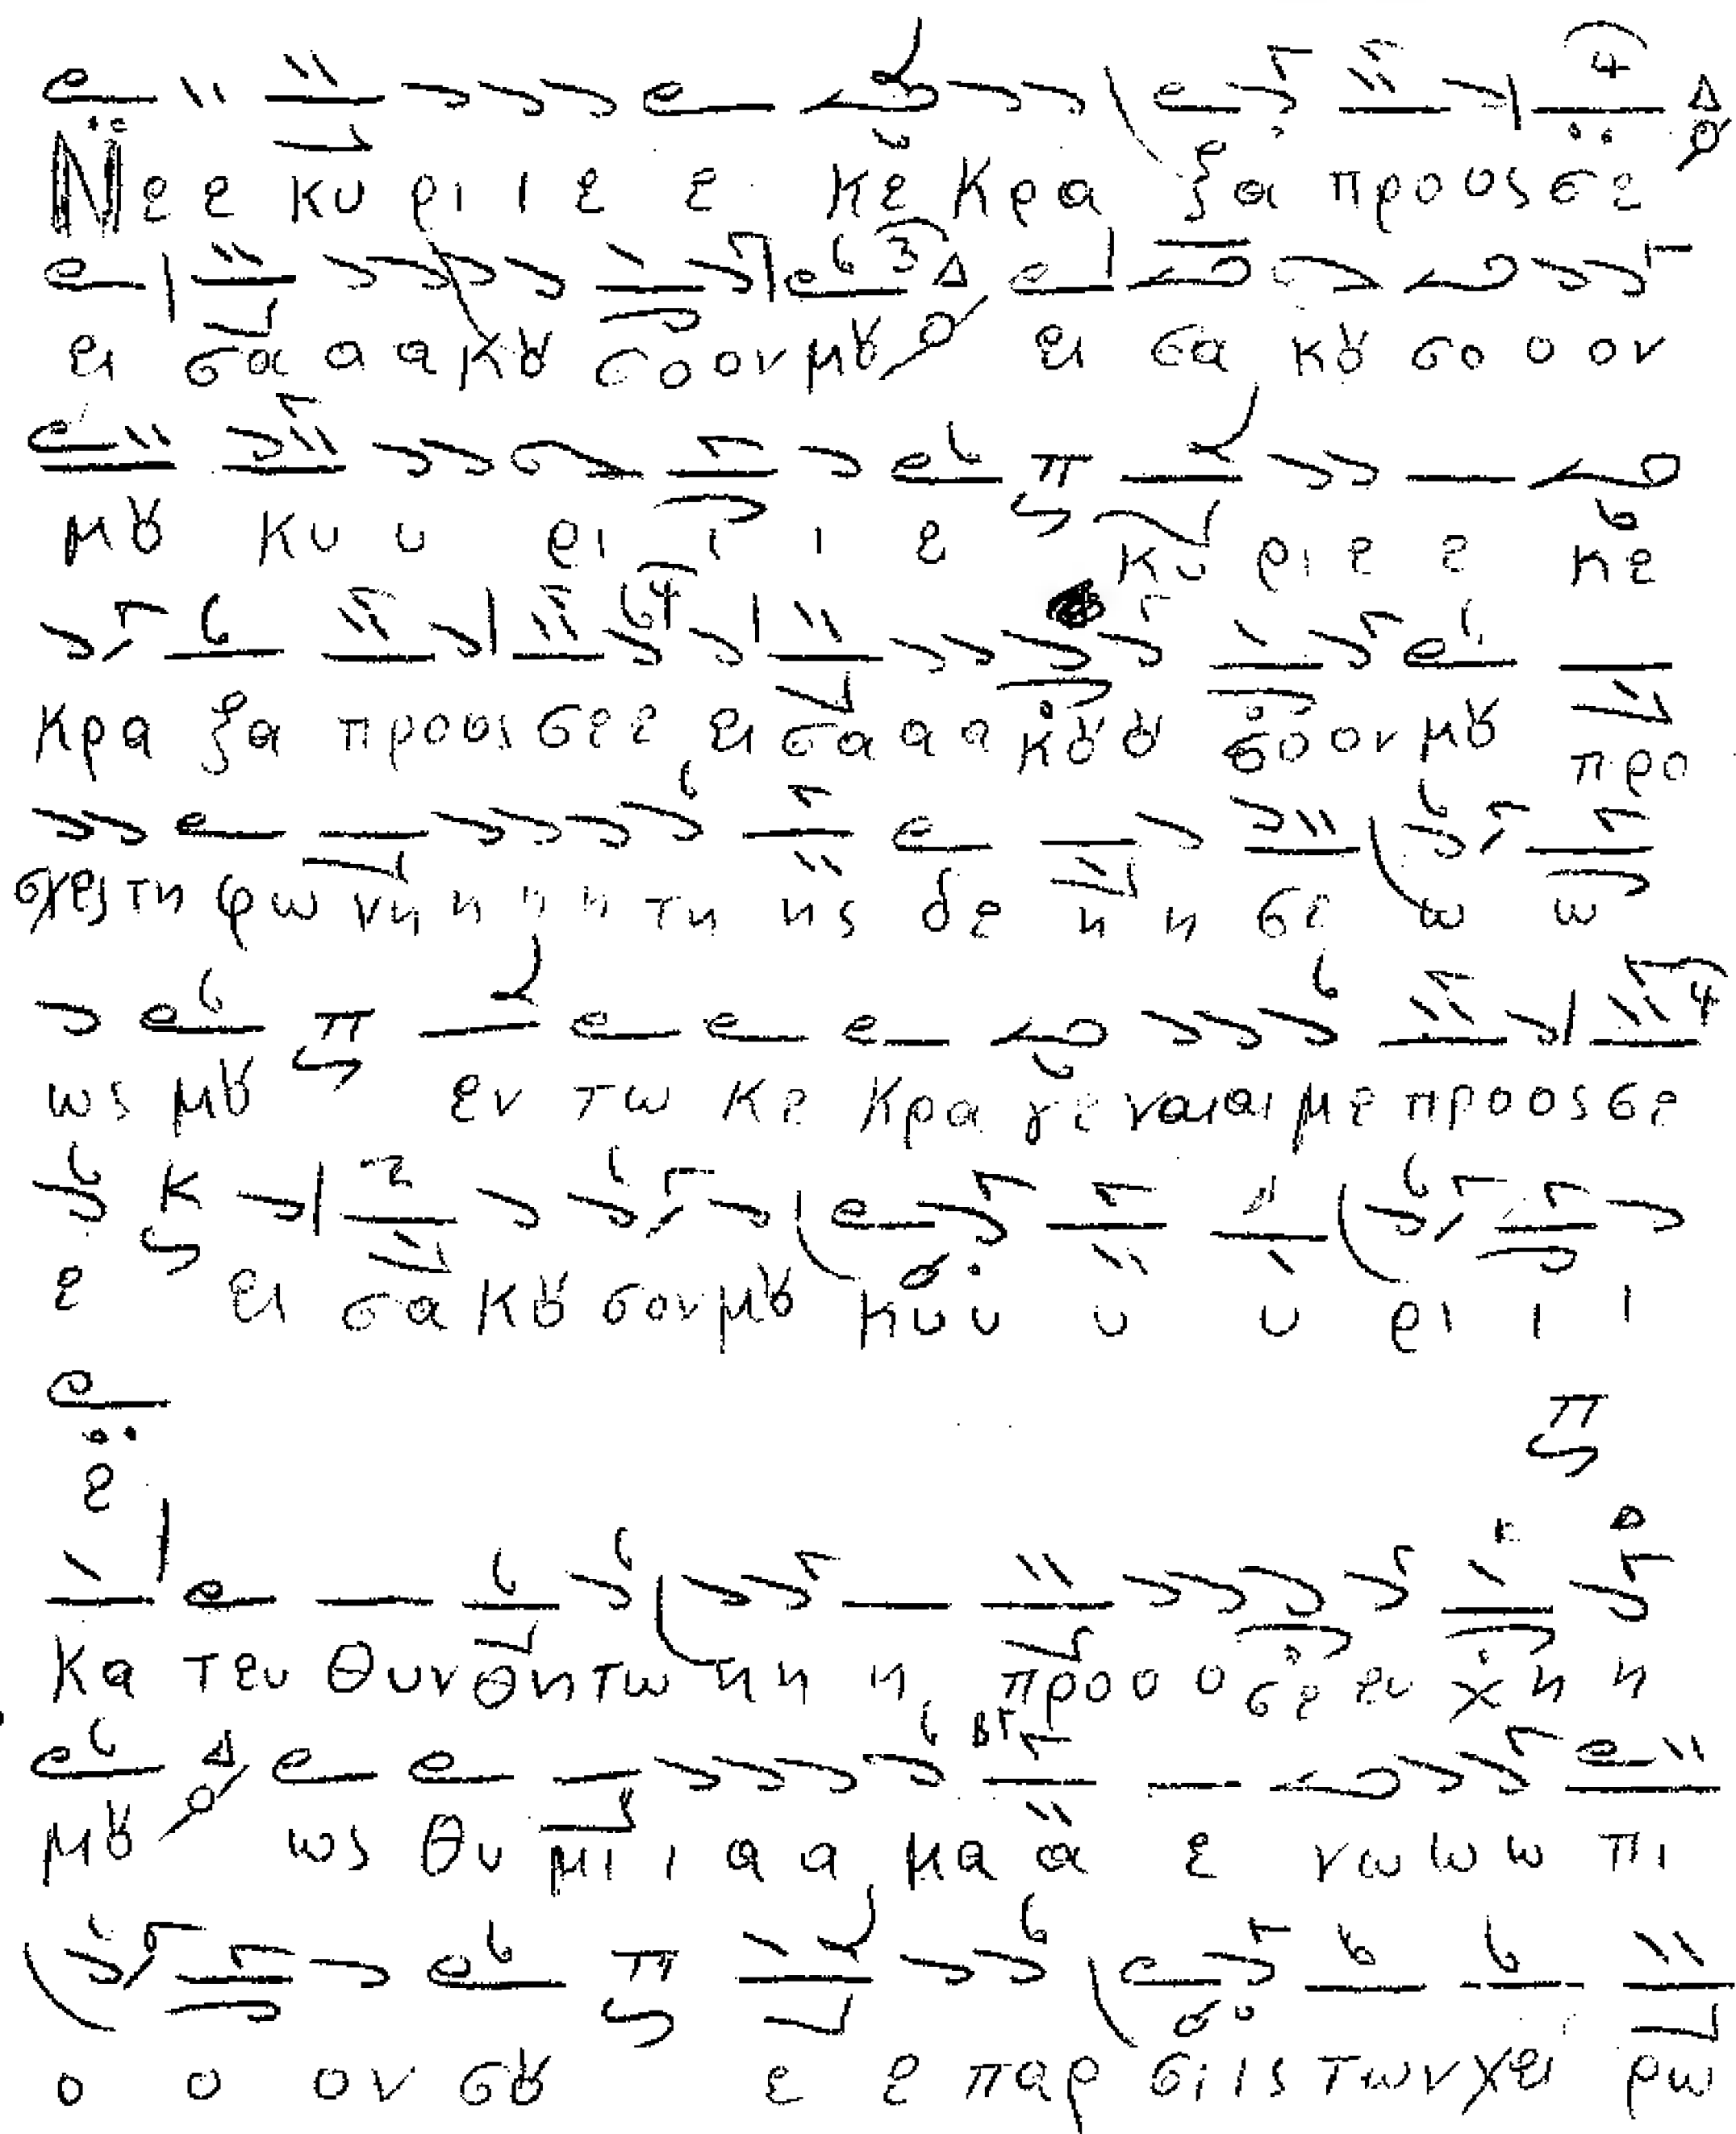 Νεε κυ ρι ι ε ε κε κρα ξα προ ος σε
ει σα α α κȣ σο ον μȣ ει σα κȣ σο ο ον
μȣ κυ υ ρι ι ι ε κυ ρι ε ε κε
κρα ξα προ ος σε ε ει σα α α κȣ ȣ σο ον μȣ προ
σχες τη φω νη η η η τη ης δε η η σε ω ω
ως μȣ εν τω κε κρα γε ναι αι με προ ος σε
ε ει σα κȣ σον μȣ κυ υ υ υ ρι ι ι
ε
κα τευ θυν θη τω η η η προ ο ο σε ευ χη η
μȣ ως θυ μι ι α α μα α ε νω ω ω πι
ο ο ον σȣ ε ε παρ σι ις των χει ρω